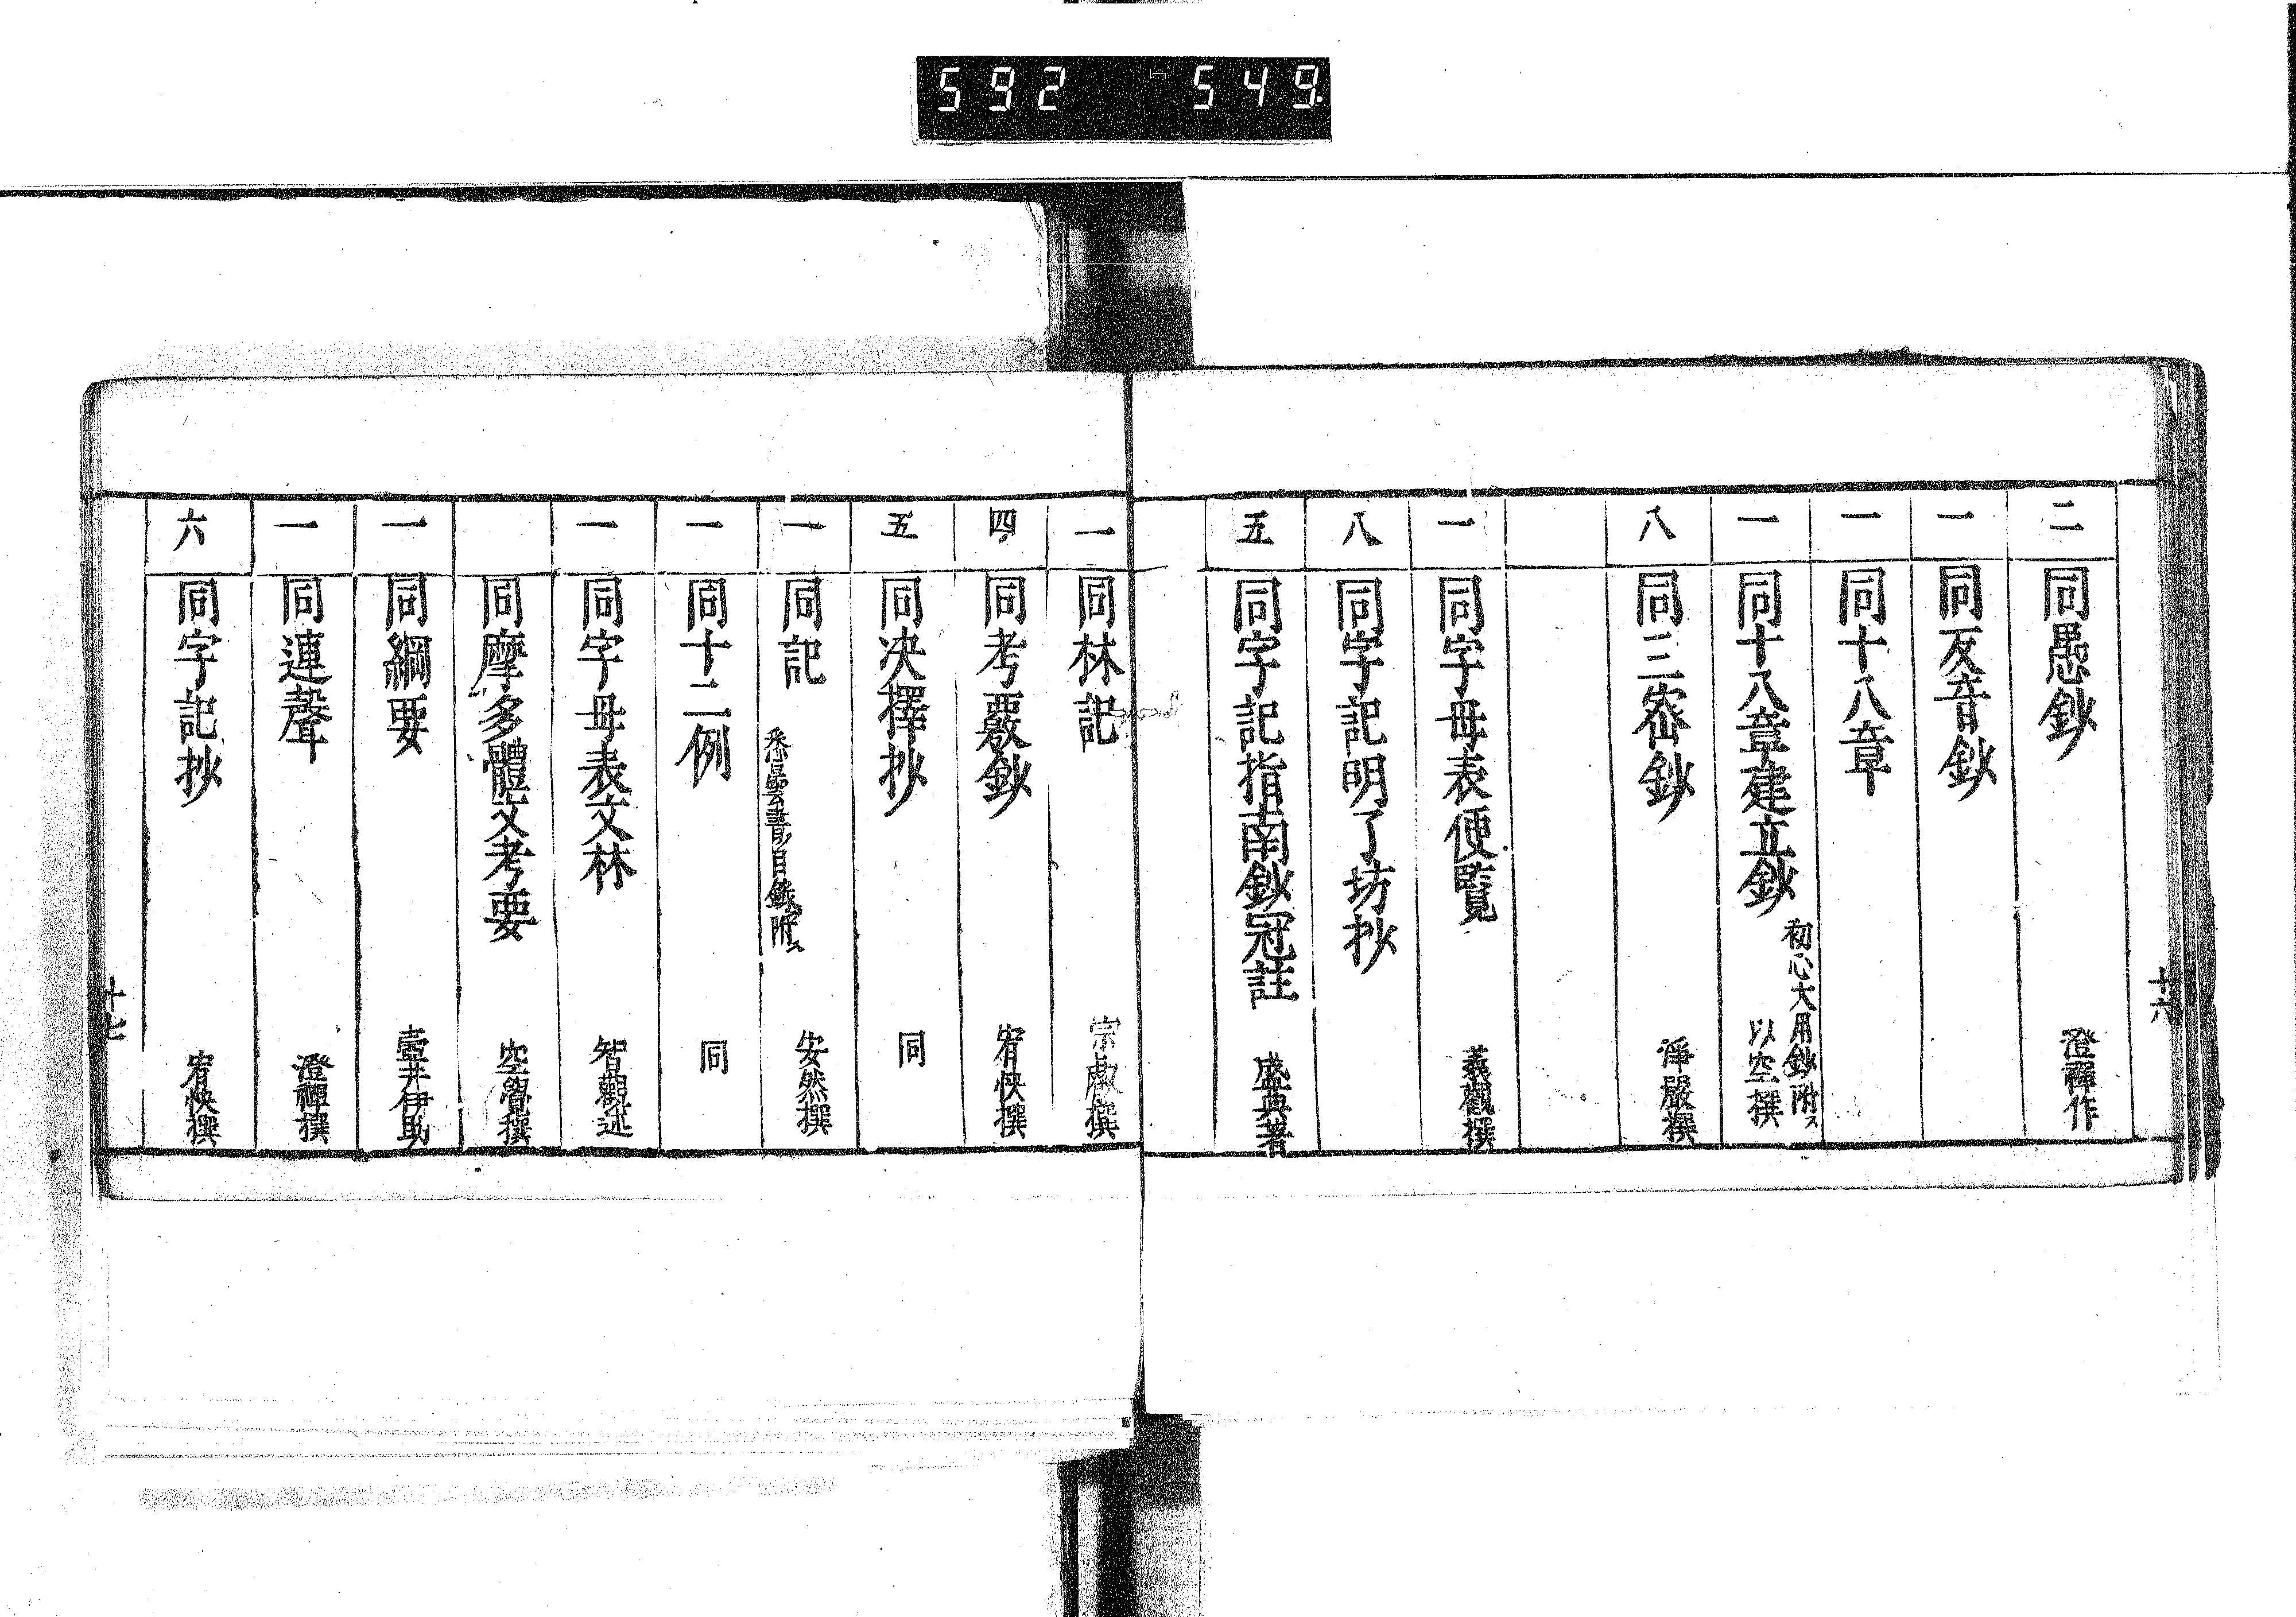 592 549
二 同愚鈔 澄禪作
一 同反音鈔
一 同十八章
一 同十八章建立鈔 初心大用鈔附ス 以空撰
八 同三密鈔 淨嚴撰
一 同字母表便覧 義觀撰
八 同字記明了坊抄
五 同字記指南鈔冠註 盛典著
十六
一 同林記 宗叡撰
四 同考覈鈔 宥快撰
五 同决擇抄 同
一 同記 悉曇書目錄附ス 安然撰
一 同十二例 同
一 同字母表文林 智觀述
同摩多體文考要 空覺撰
一 同綱要 壷井伊助
一 同連聲 澄禪撰
六 同字記抄 宥快撰
十七